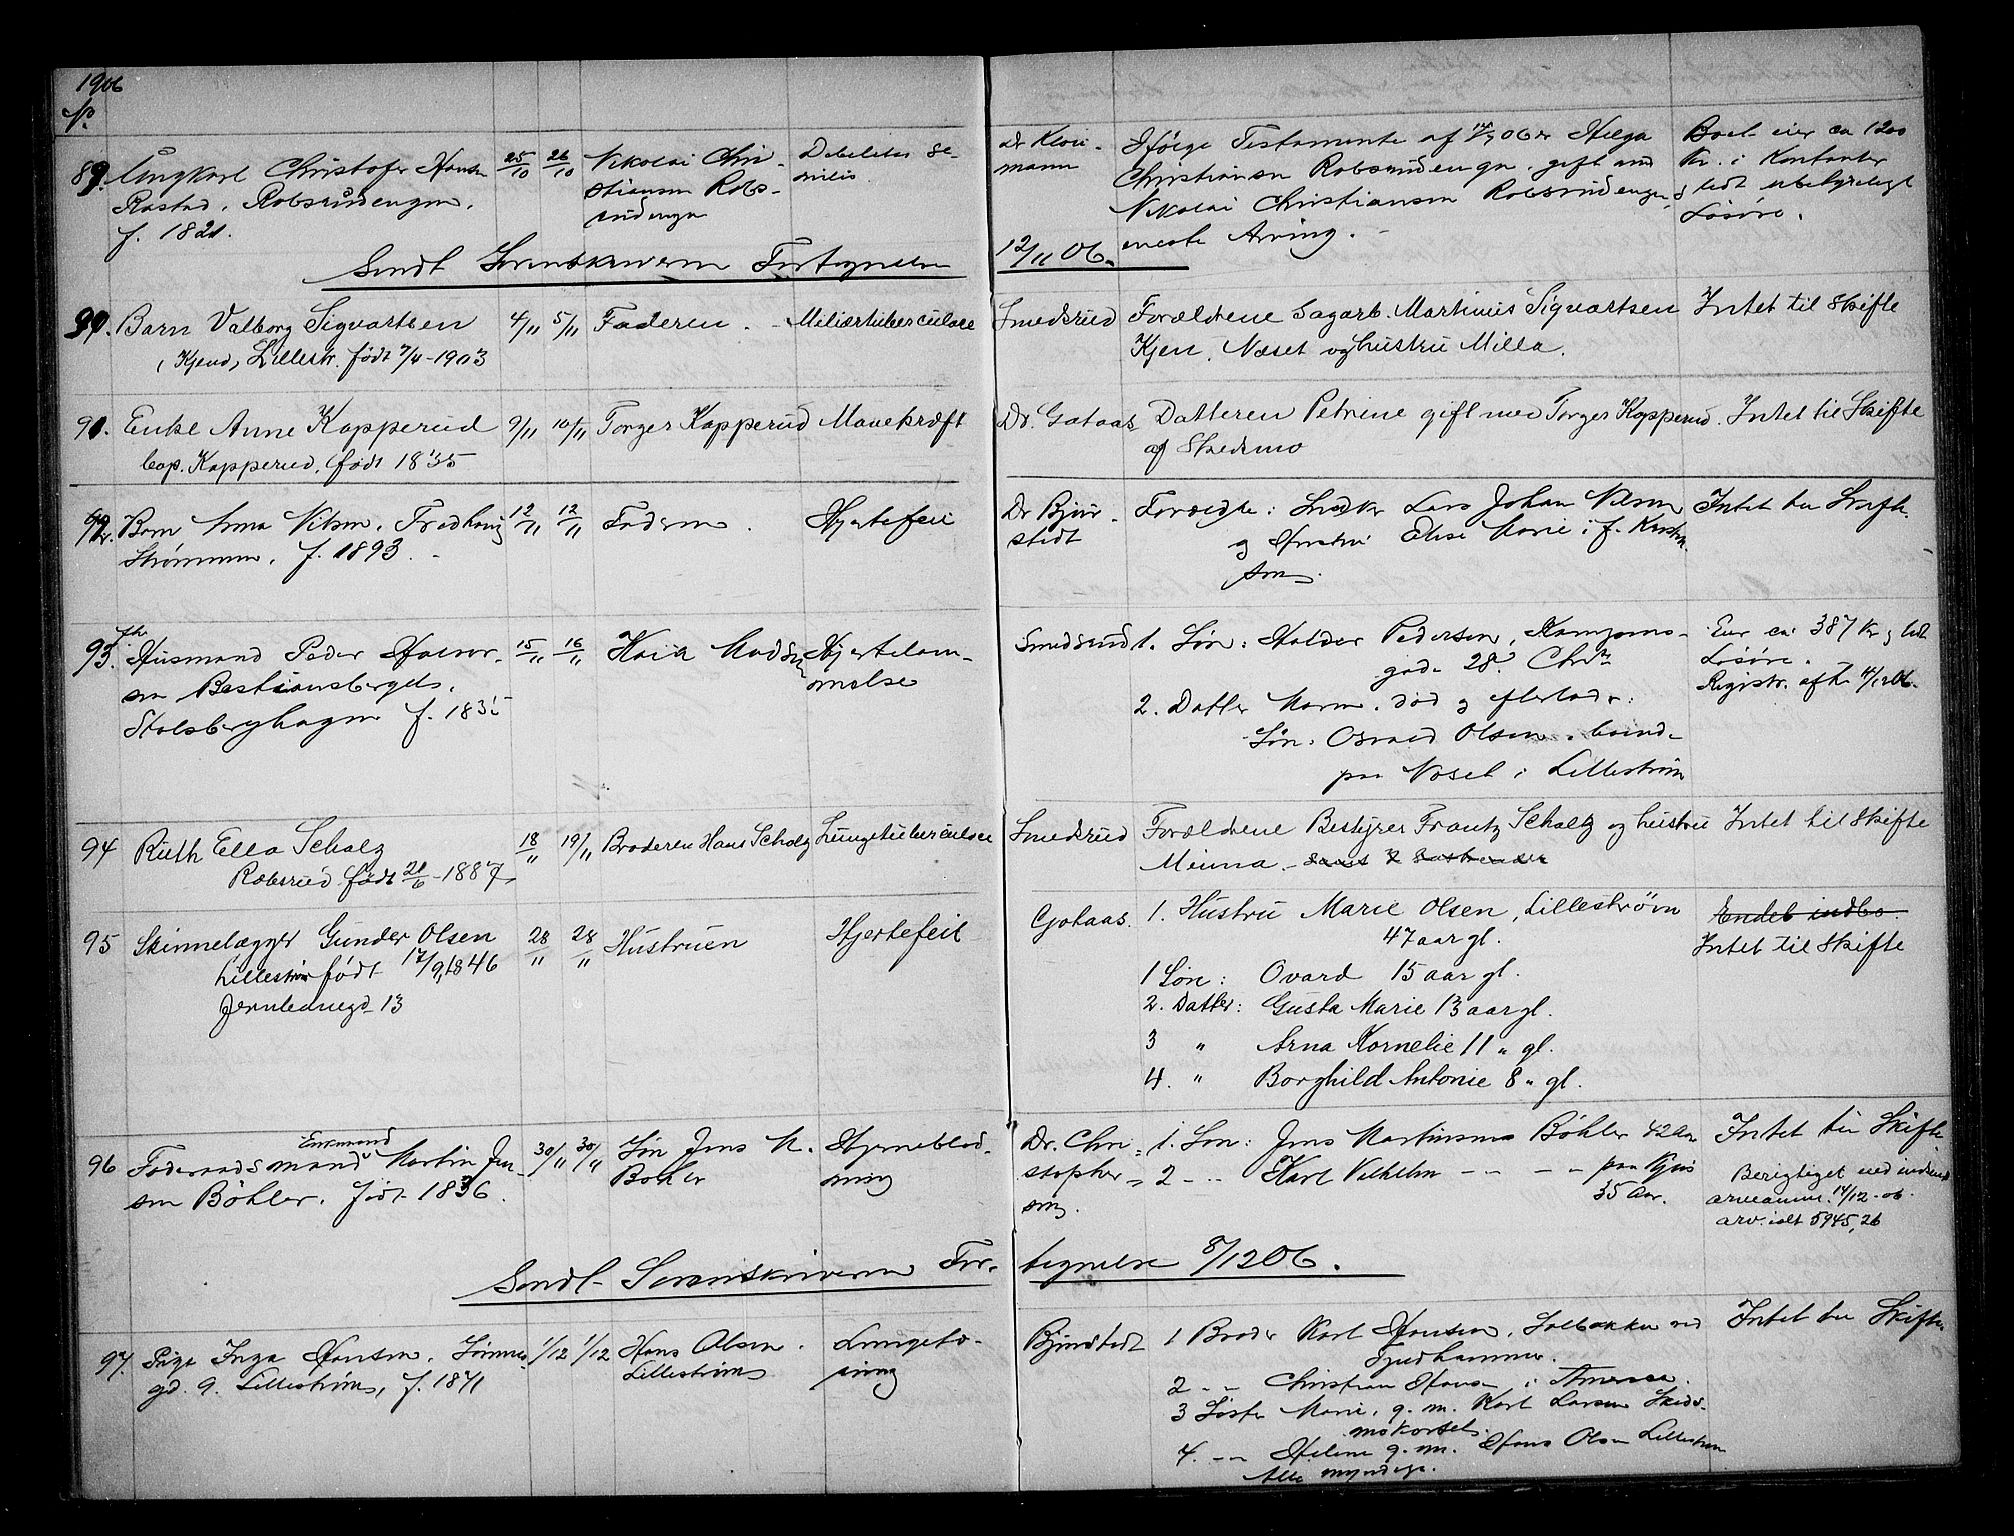 1906
No.
89. Ungkarl Christofer Hansen 25/10 26/10 Nikolai Chri- Debilitas se-
Rastad. Robsrudengen. stiansen Robs- nilis
f. 1821. rudengen
Dr Klou-
mann
Ifølge Testamente af 06 er Helga
Christiansen Robsrudengen, gift med
Nikolai Christiansen Robsrudengen,
eneste Arving.
Boet eier ca 1200
Kr. i Kontanter
og lidt ubetydeligt
Løsøre.
Sendt Sorenskriveren Fortegnelse 12/11 06.
90. Barn Valborg Sigvartsen 4/11 5/11 Faderen. Miliærtuberculose
Kjend, Lillestr. født 7/4-1903
Smedsrud Forældrene Sagarb. Martinius Sigvartsen Intet til Skifte
Kjen. Næset og hustru Milla.
91. Enke Anne Kopperud 9/11 10/11 Torger Kopperud Mavekræft
Cap. Kopperud, født 1835
Dr. Gotaas Datteren Petrine gift med Torger Kopperud. Intet til Skifte
af Skedsmo
92. Barn Anna Nilsen, Fredhoug 12/11 12/11 Faderen. Hjertefeil
Strømmen. f. 1893.
Dr Bjør-
stedt
Forældre: Lars Johan Nilsen Intet til Skifte.
og Hustru Elise Marie f.
93. fh Husmand Peder Halvor- 15/11 16/11 Maia Madsen Hjertelam-
sen Bastiansberget, melse
Stalsberghagen f. 1835
Smedsrud 1. Søn: Halder Pedersen, Kampens-
gade 28 Chr.
2. Datter Maren. død og efterlader:
Søn: Osvald Olsen. boende
paa Næset i Lillestrøm
Eier ca: 387 Kr og lidt
Løsøre.
Registr. afh.
94 Ruth Ella Scholz 18/11 19/11 Broderen Hans Scholz Lungetuberculose
Robsrud født 21/6-1887.
Smedsrud Forældrene Bestyrer Frantz Scholtz og hustru Intet til Skifte
Minna. -
95 Skinnelægger Gunder Olsen 28/11 28/11 Hustruen Hjertefeil
Lillestrøm født 17/9 1846
Jernbanegd 13
Gotaas. 1. Hustru Marie Olsen, Lillestrøm
47 aar gl.
1 Søn: Ovard 15 aar gl.
2. Datter: Gusta Marie 13 aar gl.
3 " Arna Kornelie 11 " gl.
4. " Borghild Antonie 8 " gl.
Endel indbo.
Intet til Skifte
96 Føderaadsmand Enkemand Martin Jen- 30/11 30/11 Søn Jens M. Hjerneblød-
sen Böhler. født 1836. Bøhler ning
Dr. Chri-
stopher-
sen.
1. Søn: Jens Martinsen Böhler 42 Aar
2 - " - Karl Vilhelm - " - - " - paa Kjus
35 Aar.
Intet til Skifte
Berigtiget ved indsend
arveanm. 14/12-06.
arv. ialt 5945,26
Sendt Sorenskriveren For- tegnelse 8/12 06.
97. Pige Inga Hansen. 1/12 1/12 Hans Olsen. Lungetø-
gd. 9. Lillestrøm, f. 1871 Lillestrøm ring
Bjørstedt 1 Broder Karl Hansen, Solbakken ved Intet til Skifte
Tjudhammer.
2 - " - Christian Hansen i Amerika.
3 Søster Marie, g. m. Karl Larsen Skeds-
mokorset.
4. - " - Helene g. m. Hans Olsen Lillestrøm
Alle myndige.